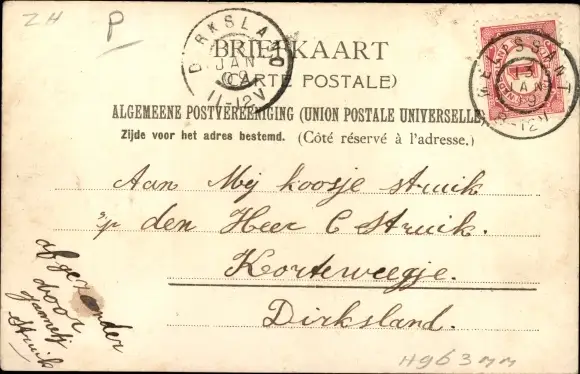 ZH P
DIRKSLAND
JAN
09
11-12V
BRIEFKAART
(CARTE POSTALE)
ALGEMEENE POSTVEREENIGING (UNION POSTALE UNIVERSELLE)
Zijde voor het adres bestemd. (Côté réservé à l'adresse.)
MELISSANT
JAN
Aan Mej koosje struik
p den Heer C Struik.
Korteweegje.
Dirksland.
afzender
door
Jannetj
Struik
H963mm